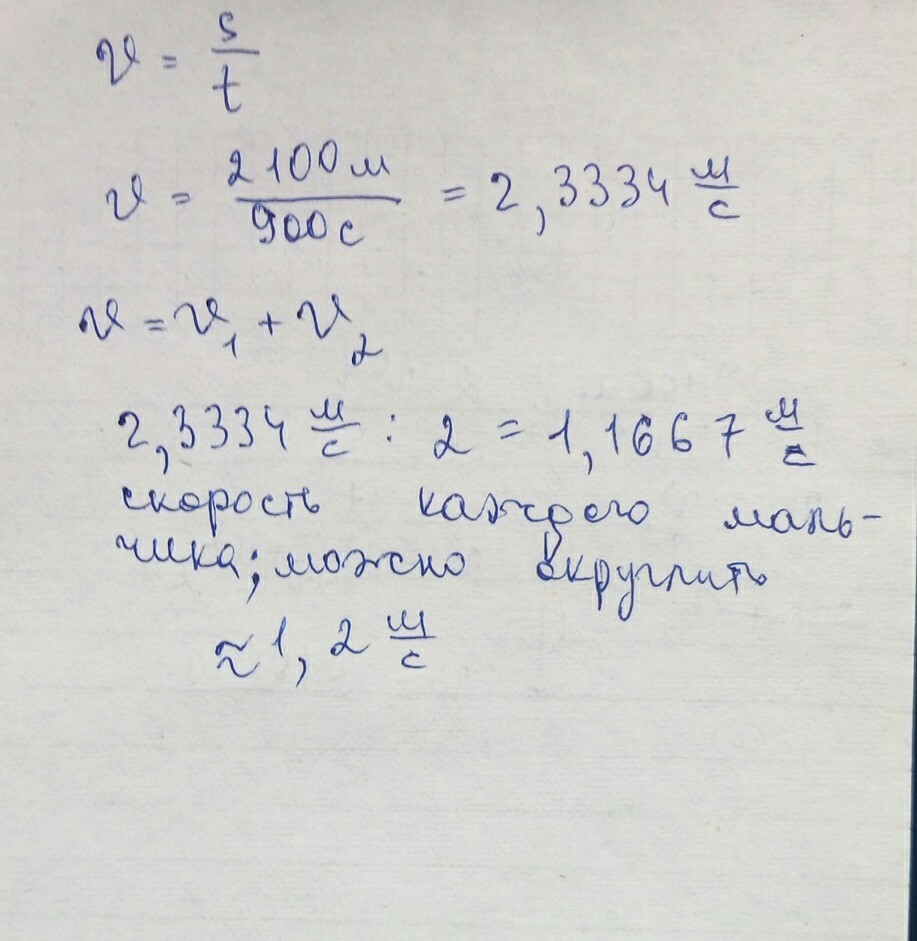 v = s/t
v = 2100м/900с = 2,3334 м/с
v = v₁ + v₂
2,3334 м/с : 2 = 1,1667 м/с
скорость каждого маль-
чика; можно округлить
≈ 1,2 м/с